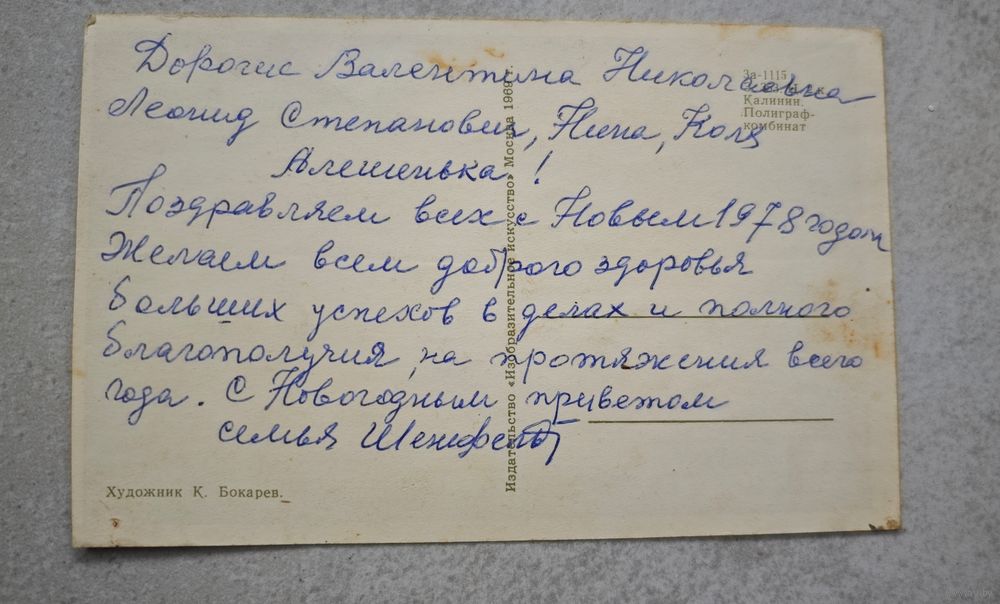 Дорогие Валентина Николаевна
Леонид Степанович, Нина, Коля
Алешенька!
Поздравляем всех с Новым 1978 годом
Желаем всем доброго здоровья
больших успехов в делах и полного
благополучия, на протяжения всего
года. С Новогодным приветом
семья
За-1115
Калинин.
Полиграф-
комбинат
Издательство «Изобразительное искусство» Москва 1969 г.
Художник К. Бокарев.